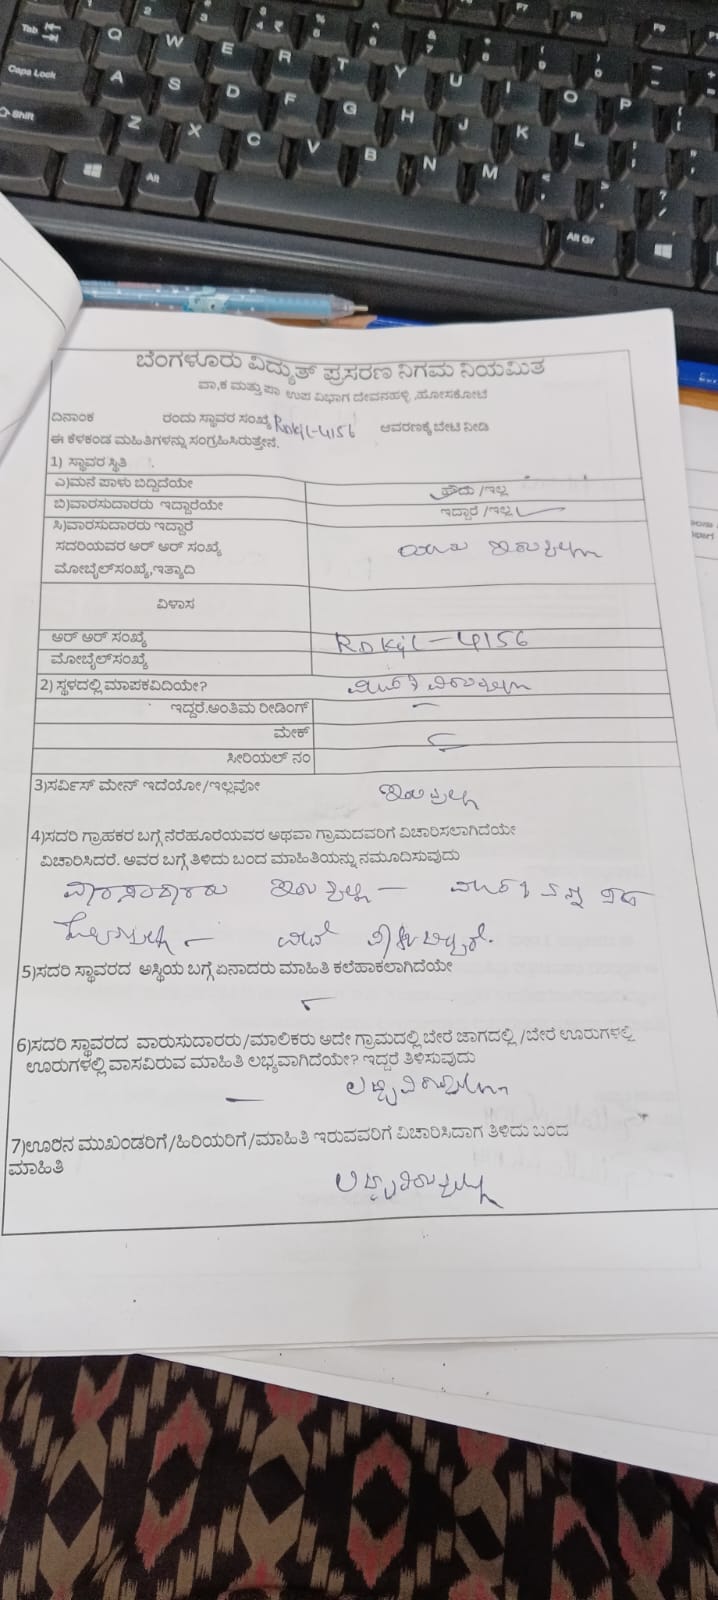 ಬೆಂಗಳೂರು ವಿದ್ಯುತ್ ಪ್ರಸರಣ ನಿಗಮ ನಿಯಮಿತ
ವಾ,ಕ ಮತ್ತು ಪಾ ಉಪ ವಿಭಾಗ ದೇವನಹಳ್ಳಿ ,ಹೋಸಕೋಟೆ
ದಿನಾಂಕ ರಂದು ಸ್ಥಾವರ ಸಂಖ್ಯೆ RDKjL-4156 ಆವರಣಕ್ಕೆ ಬೇಟಿ ನೀಡಿ
ಈ ಕೆಳಕಂಡ ಮಹಿತಿಗಳನ್ನು ಸಂಗ್ರಹಿಸಿರುತ್ತೇನೆ.
1) ಸ್ಥಾವರ ಸ್ಥಿತಿ
ಎ)ಮನೆ ಪಾಳು ಬಿದ್ದಿದೆಯೇ ಹೌದು /ಇಲ್ಲ
ಬಿ)ವಾರಸುದಾರರು ಇದ್ದಾರೆಯೇ ಇದ್ದಾರೆ /ಇಲ್ಲ
ಸಿ)ವಾರಸುದಾರರು ಇದ್ದಾರೆ
ಸದರಿಯವರ ಆರ್ ಆರ್ ಸಂಖ್ಯೆ ಯಾರು ಇರುವುದಿಲ್ಲ
ಮೋಬೈಲ್‌ಸಂಖ್ಯೆ,ಇತ್ಯಾದಿ
ವಿಳಾಸ
ಆರ್ ಆರ್ ಸಂಖ್ಯೆ RDKjL-4156
ಮೋಬೈಲ್‌ಸಂಖ್ಯೆ
2) ಸ್ಥಳದಲ್ಲಿ ಮಾಪಕವಿದಿಯೇ?
ಇದ್ದರೆ.ಅಂತಿಮ ರೀಡಿಂಗ್ –
ಮೇಕ್
ಸೀರಿಯಲ್ ನಂ
3)ಸರ್ವಿಸ್ ಮೇನ್ ಇದೆಯೋ/ಇಲ್ಲವೋ ಇರುವುದಿಲ್ಲ
4)ಸದರಿ ಗ್ರಾಹಕರ ಬಗ್ಗೆ ನೆರೆಹೊರೆಯವರ ಅಥವಾ ಗ್ರಾಮದವರಿಗೆ ವಿಚಾರಿಸಲಾಗಿದೆಯೇ
ವಿಚಾರಿಸಿದರೆ. ಅವರ ಬಗ್ಗೆ ತಿಳಿದು ಬಂದ ಮಾಹಿತಿಯನ್ನು ನಮೂದಿಸುವುದು
ವಾರಸುದಾರರು ಇರುವುದಿಲ್ಲ –
5)ಸದರಿ ಸ್ಥಾವರದ ಅಸ್ಥಿಯ ಬಗ್ಗೆ ಏನಾದರು ಮಾಹಿತಿ ಕಲೆಹಾಕಲಾಗಿದೆಯೇ
6)ಸದರಿ ಸ್ಥಾವರದ ವಾರುಸುದಾರರು/ಮಾಲಿಕರು ಅದೇ ಗ್ರಾಮದಲ್ಲಿ ಬೇರೆ ಜಾಗದಲ್ಲಿ /ಬೇರೆ ಊರುಗಳಲ್ಲಿ
ಊರುಗಳಲ್ಲಿ ವಾಸವಿರುವ ಮಾಹಿತಿ ಲಭ್ಯವಾಗಿದೆಯೇ? ಇದ್ದರೆ ತಿಳಿಸುವುದು
– ಲಭ್ಯವಿರುವುದಿಲ್ಲ
7)ಊರಿನ ಮುಖಂಡರಿಗೆ/ಹಿರಿಯರಿಗೆ/ಮಾಹಿತಿ ಇರುವವರಿಗೆ ವಿಚಾರಿಸಿದಾಗ ತಿಳಿದು ಬಂದ
ಮಾಹಿತಿ
ಲಭ್ಯವಿರುವುದಿಲ್ಲ